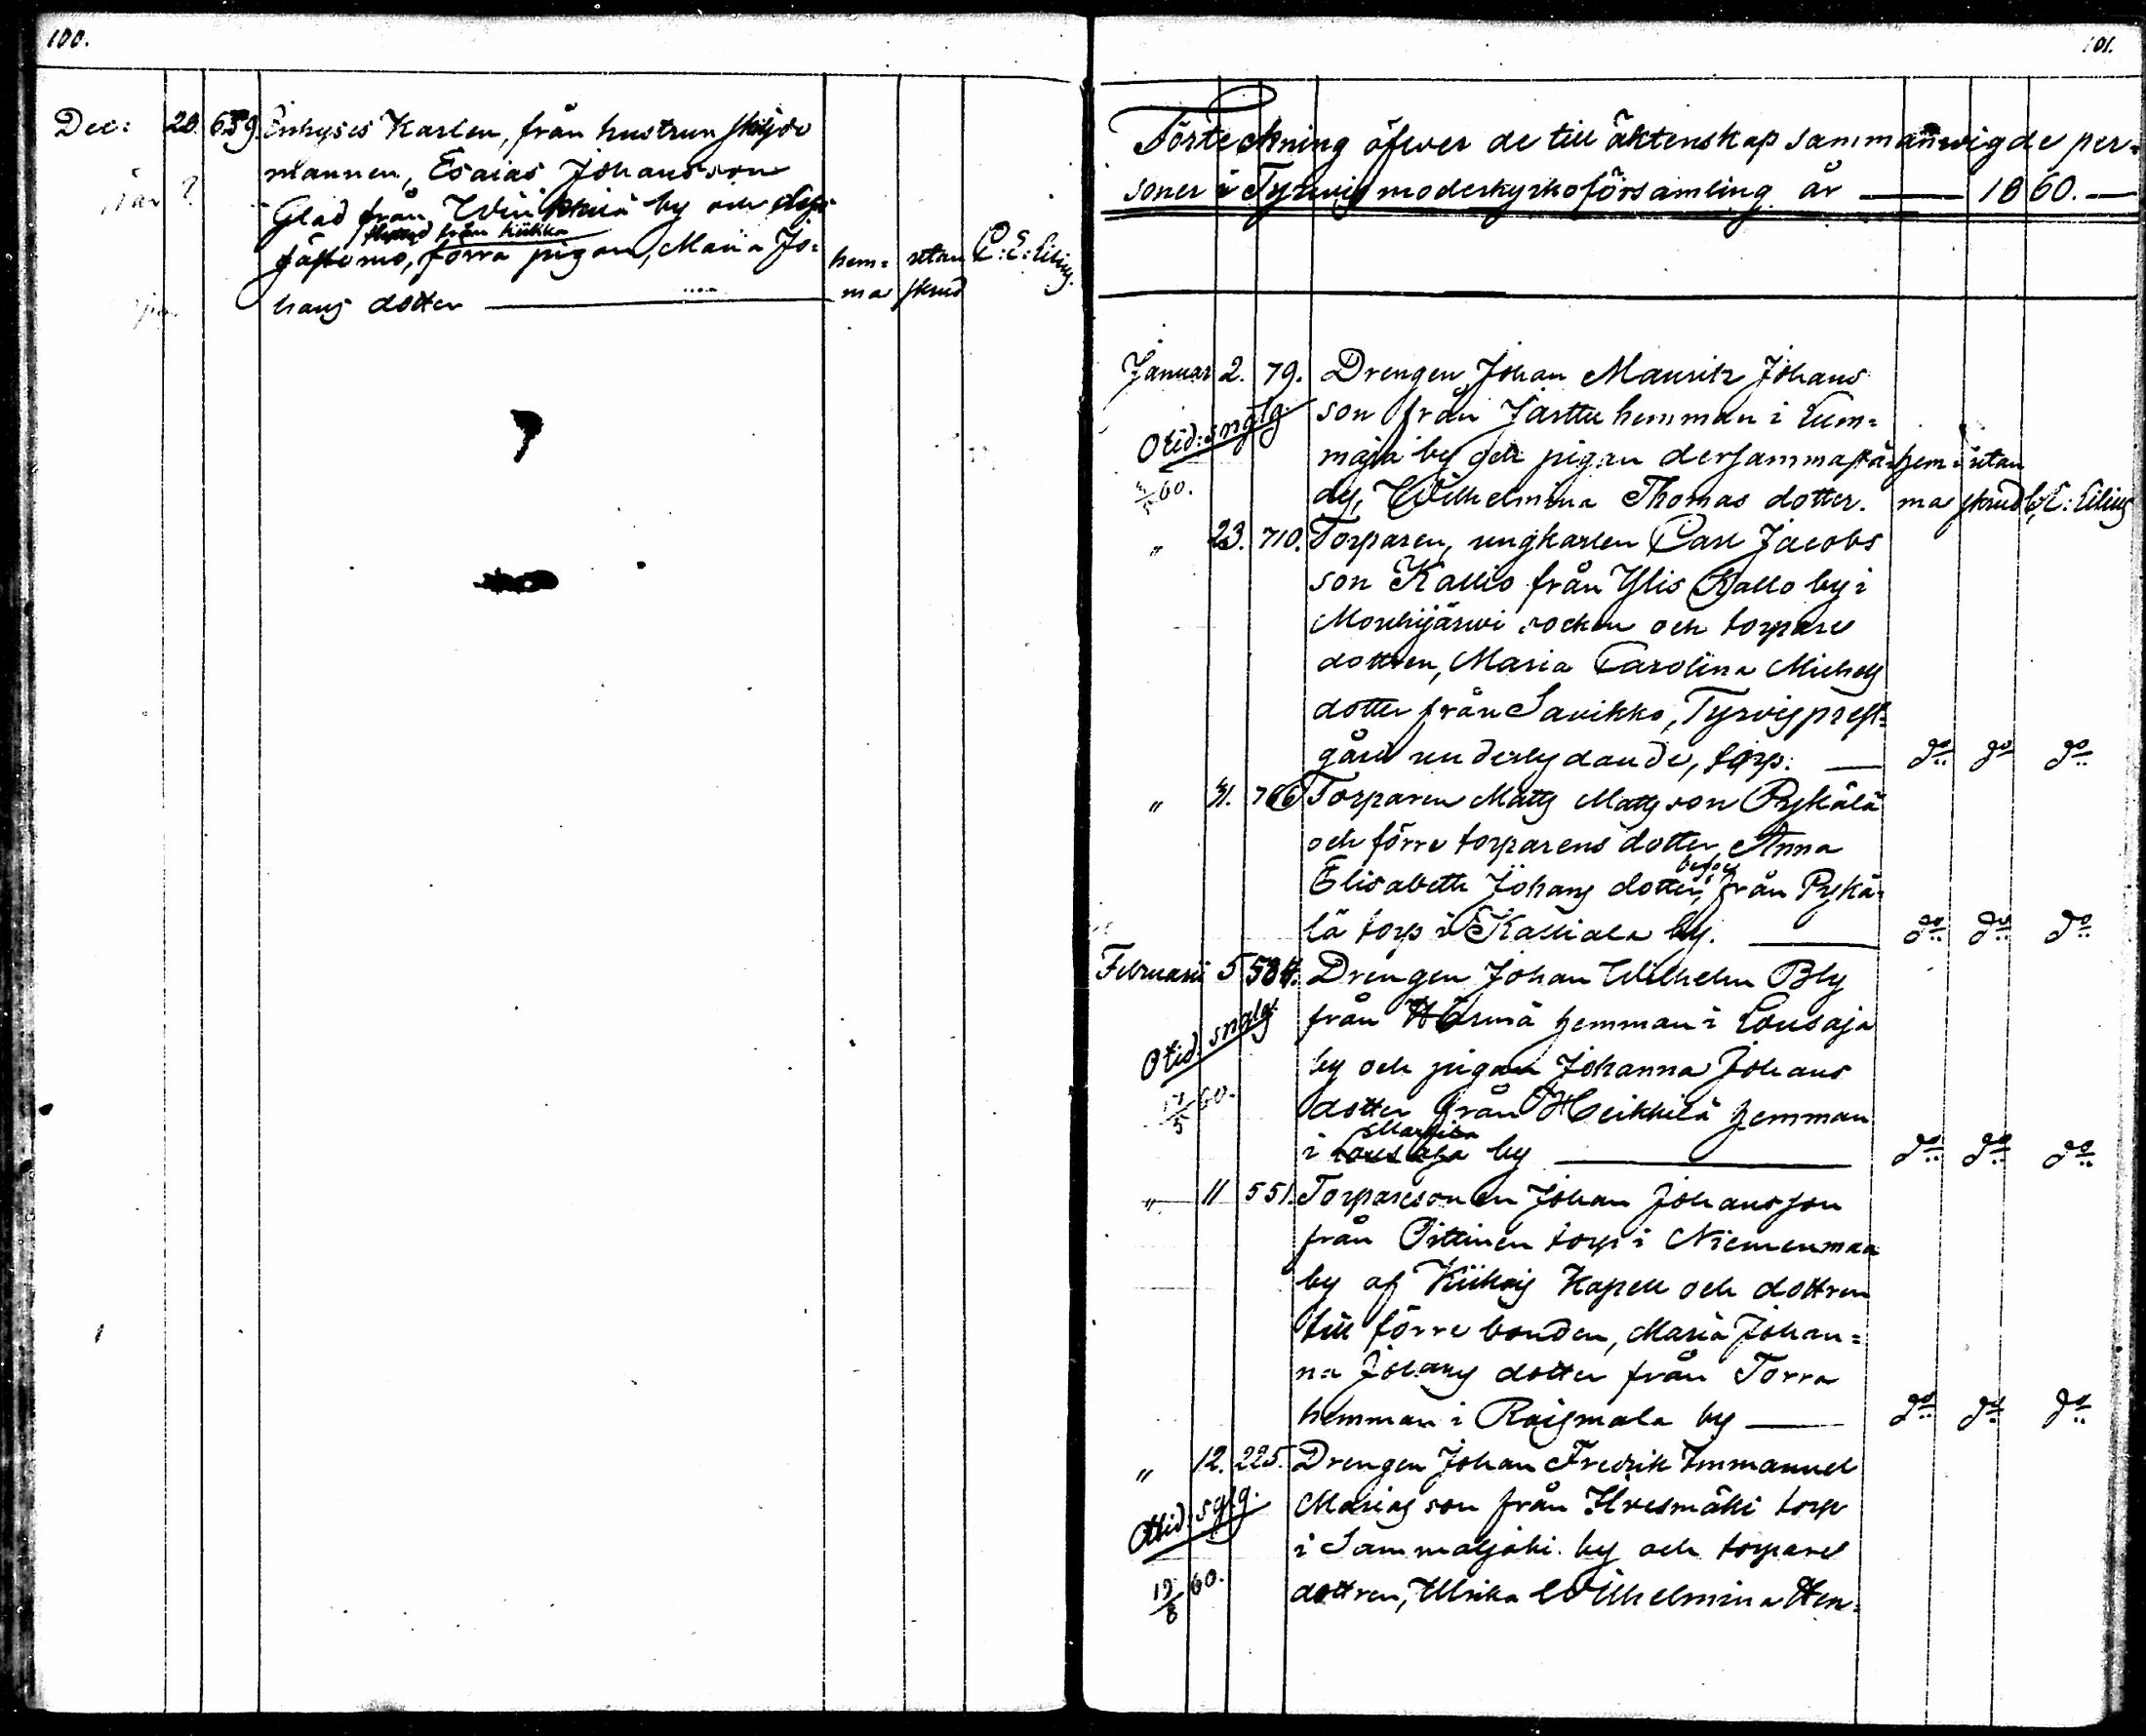 100.
Dec: 20. 659. Inhyses Karlen, från hustrun skiljde
mannen, Esaias Johansson
Glad från by och
flyttad från Kiikka
fästemö, förra pigan, Maria Jo= hem= utan C: E: Eilius.
hans dotter ma skrud
101.
Förteckning öfwer de till äktenskap sammanwigde per=
soner i Tyrwis moderkyrkoförsamling år 1860.
Januar 2. 79. Drengen Johan Maurits Johans
son från Jasttu hemman i Lum=
Otid: snglg.
maja by och pigan dersammastä= hem= utan
60. des, Wilhelmina Thomas dotter. ma skrud C: E: Eilius
" 23. 710. Torparen, ungkarlen Carl Jacobs
son Kallio från Ylis Kallo by i
Mouhijärwi socken och torpare
dottren, Maria Carolina Michels
dotter från Sawikko, Tyrwis prest=
gård underlydande, torp. do do do
" 31. 766 Torparen Matts Mattsson Pyskälä
och förre torparens dotter, Anna
Elisabeth Johans dotter, begge från Pyskä=
lä torp i Kalliala by. do do do
Februarii 5 584. Drengen Johan Wilhelm Bly
från Härmä hemman i Lousaja
Otid: snglg.
by och pigan Johanna Johans
17/5 60. dotter från Heikkilä hemman
i Lousaja by do do do
" 11 551. Torparesonen Johan Johansson
från Pittinen torp i Niemenmaa
by af Kiikois Kapell och dottren
till förre bonden, Maria Johan=
na Johans dotter från Torra
hemman i Roismala by do do do
" 12. 225. Drengen Johan Fredrik Immanuel
Marias son från Ilvesmäki torp
Otid: sglg.
i Sammaljoki by och torpare
19/8 60. dottren, Ulrika Wilhelmina Hen=